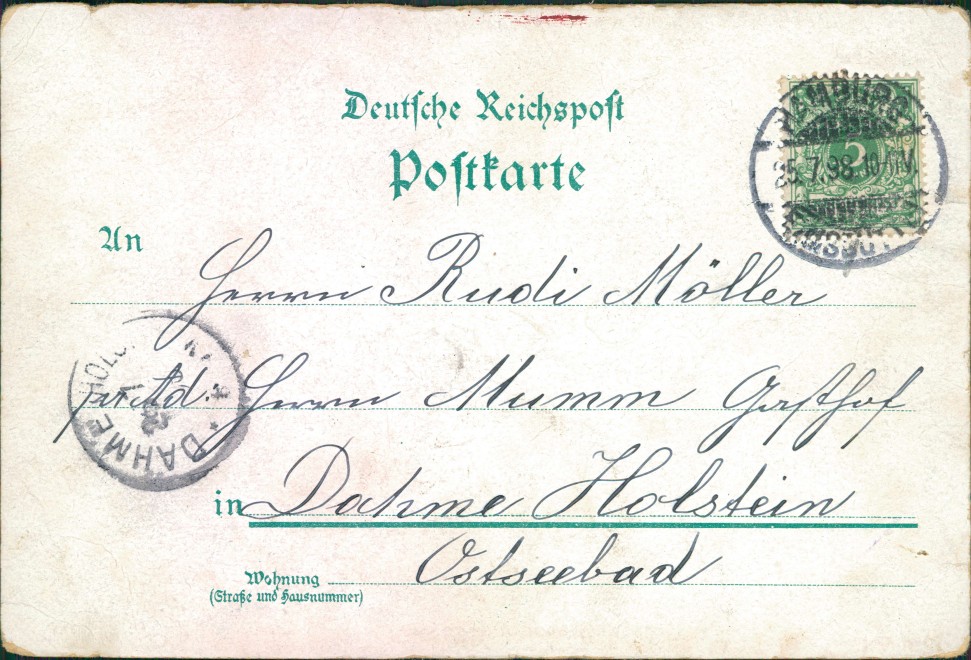 Deutsche Reichspost
Postkarte
HAMBURG
5
25.7.98.10-11V.
An
Herrn Rudi Möller
p. Ad: Herrn Mumm Gasthof
DAHME
in Dahme Holstein
Ostseebad
Wohnung
(Straße und Hausnummer)